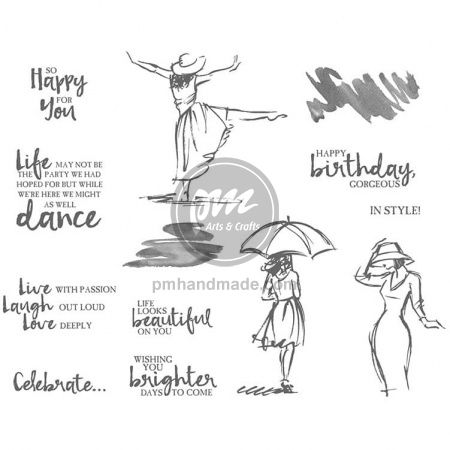 SO
Happy
FOR
You
Life MAY NOT BE
THE PARTY WE HAD
HOPED FOR BUT WHILE
WE'RE HERE WE MIGHT
AS WELL
dance
Live WITH PASSION
Laugh OUT LOUD
Love DEEPLY
Celebrate...
LIFE
LOOKS
beautiful
ON YOU
WISHING
YOU
brighter
DAYS TO COME
HAPPY
birthday,
GORGEOUS
IN STYLE!
pm
Arts & Crafts
pmhandmade.com